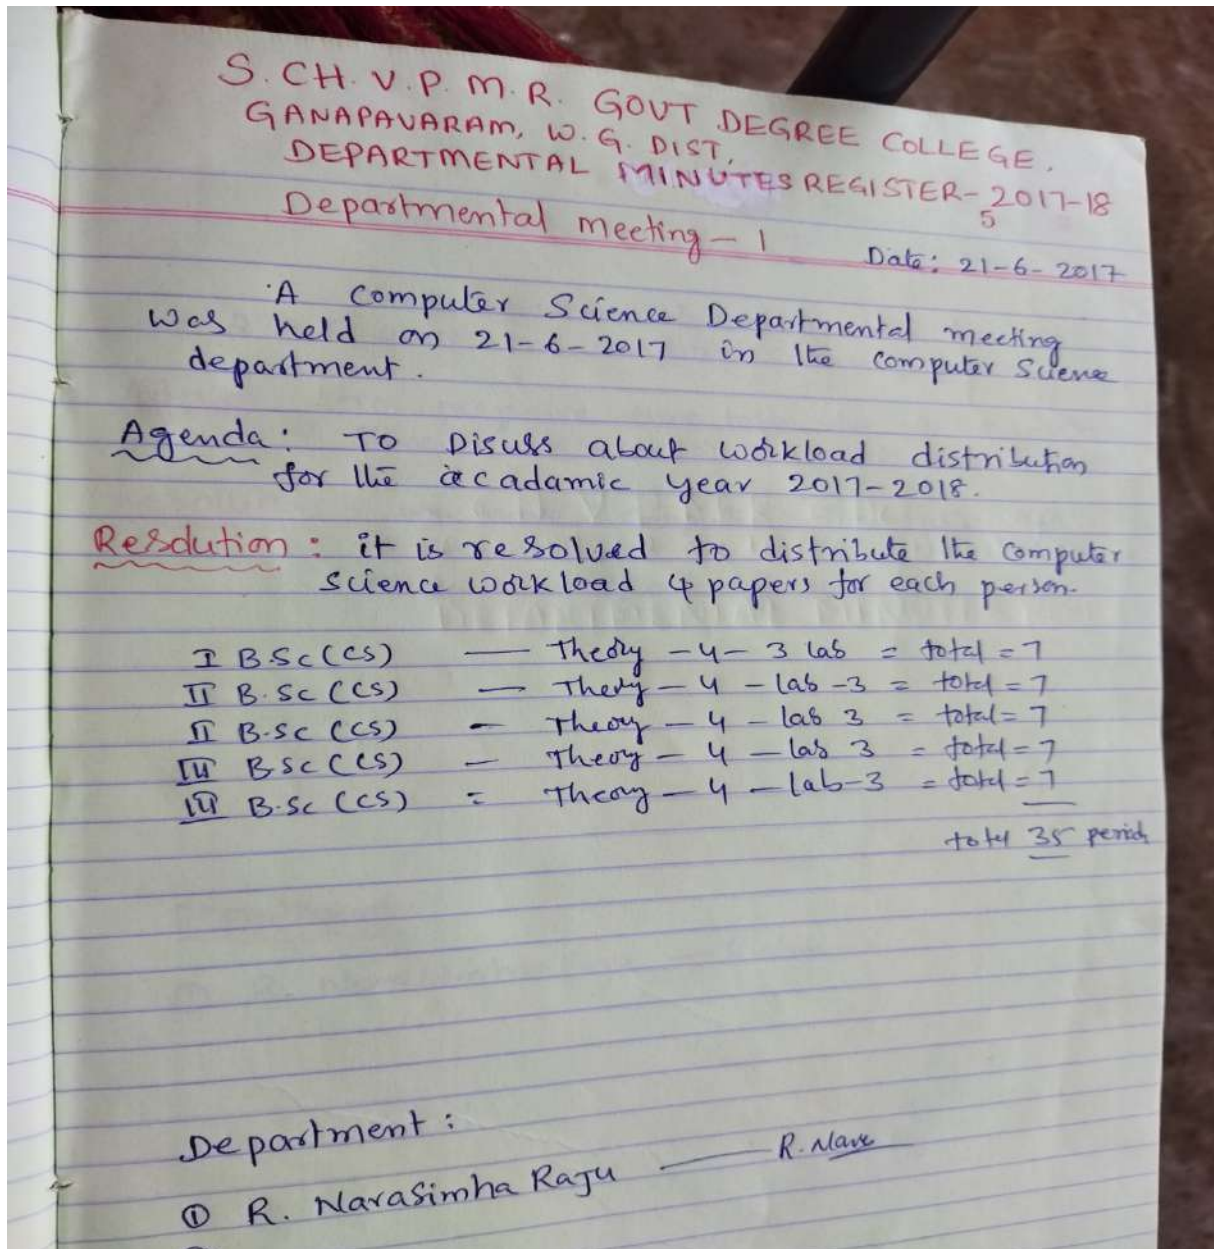 S. CH. V. P. M. R. GOVT DEGREE COLLEGE.
GANAPAVARAM, W. G. DIST,
DEPARTMENTAL MINUTES REGISTER- 2017-18
5
Departmental meeting - 1
Date: 21-6-2017
A Computer Science Departmental meeting
was held on 21-6-2017 in the computer Science
department.
Agenda: TO Discuss about workload distribution
for the acadamic year 2017-2018.
Resolution: it is resolved to distribute the computer
science workload 4 papers for each person.
I B.Sc (CS) — Theory - 4 - 3 lab = total = 7
II B.Sc (CS) — Theory - 4 - lab - 3 = total = 7
II B.Sc (CS) - Theory - 4 - lab 3 = total = 7
III B.Sc (CS) - Theory - 4 - lab 3 = total = 7
III B.Sc (CS) = Theory - 4 - lab-3 = total = 7
total 35 periods
Department:
① R. Narasimha Raju — R. Nara